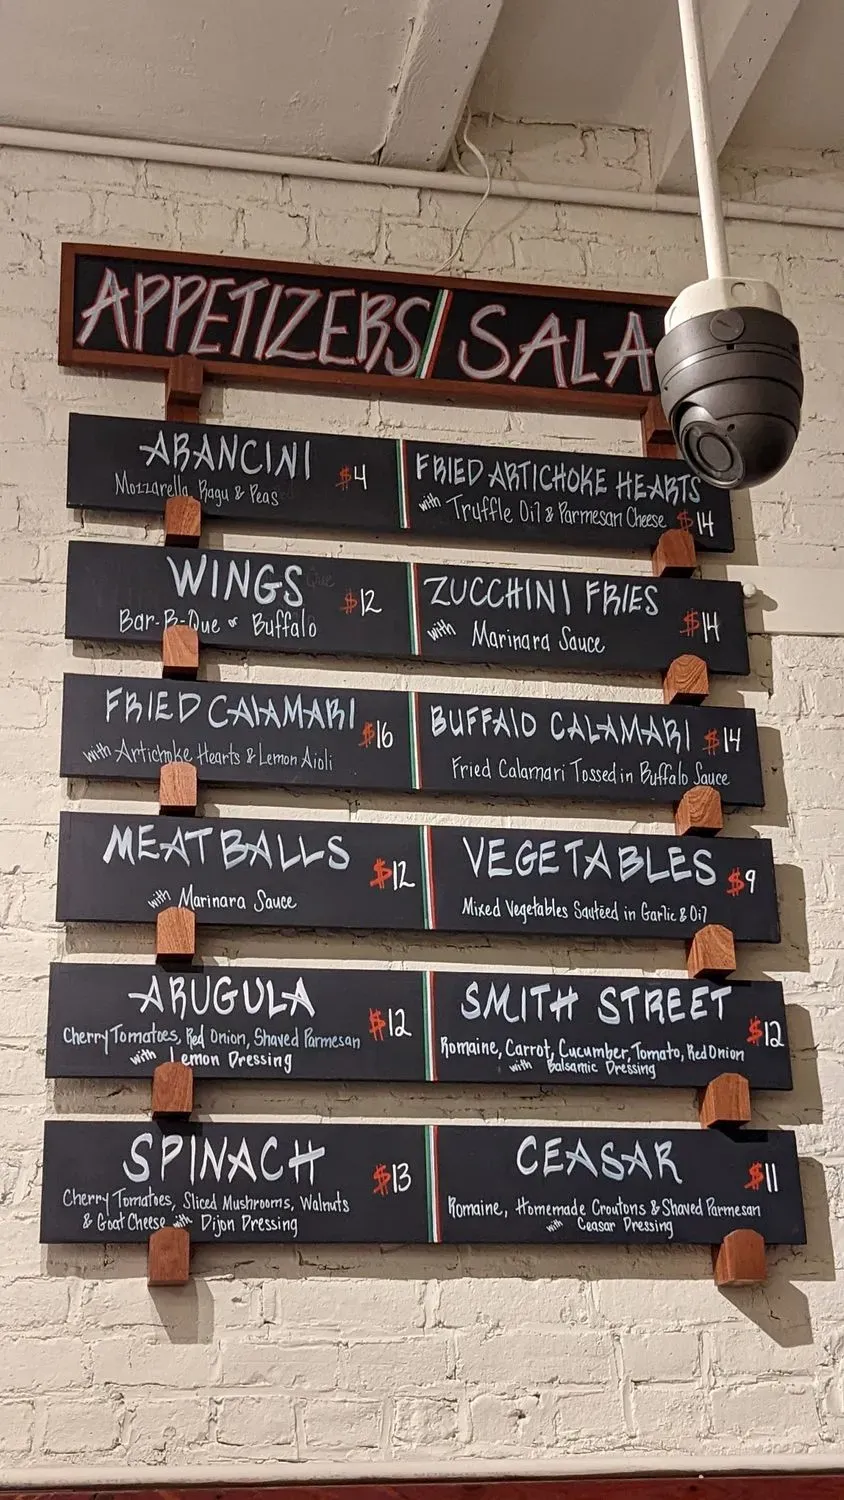 APPETIZERS/SALA
ARANCINI $4
Mozzarella Ragu & Peas
FRIED ARTICHOKE HEARTS
with Truffle Oil & Parmesan Cheese $14
WINGS $12
Bar-B-Que or Buffalo
ZUCCHINI FRIES $14
with Marinara Sauce
FRIED CALAMARI $16
with Artichoke Hearts & Lemon Aioli
BUFFALO CALAMARI $14
Fried Calamari Tossed in Buffalo Sauce
MEATBALLS $12
with Marinara Sauce
VEGETABLES $9
Mixed Vegetables Sautéed in Garlic & Oil
ARUGULA $12
Cherry Tomatoes, Red Onion, Shaved Parmesan
with Lemon Dressing
SMITH STREET $12
Romaine, Carrot, Cucumber, Tomato, Red Onion
with Balsamic Dressing
SPINACH $13
Cherry Tomatoes, Sliced Mushrooms, Walnuts
& Goat Cheese with Dijon Dressing
CEASAR $11
Romaine, Homemade Croutons & Shaved Parmesan
with Ceasar Dressing